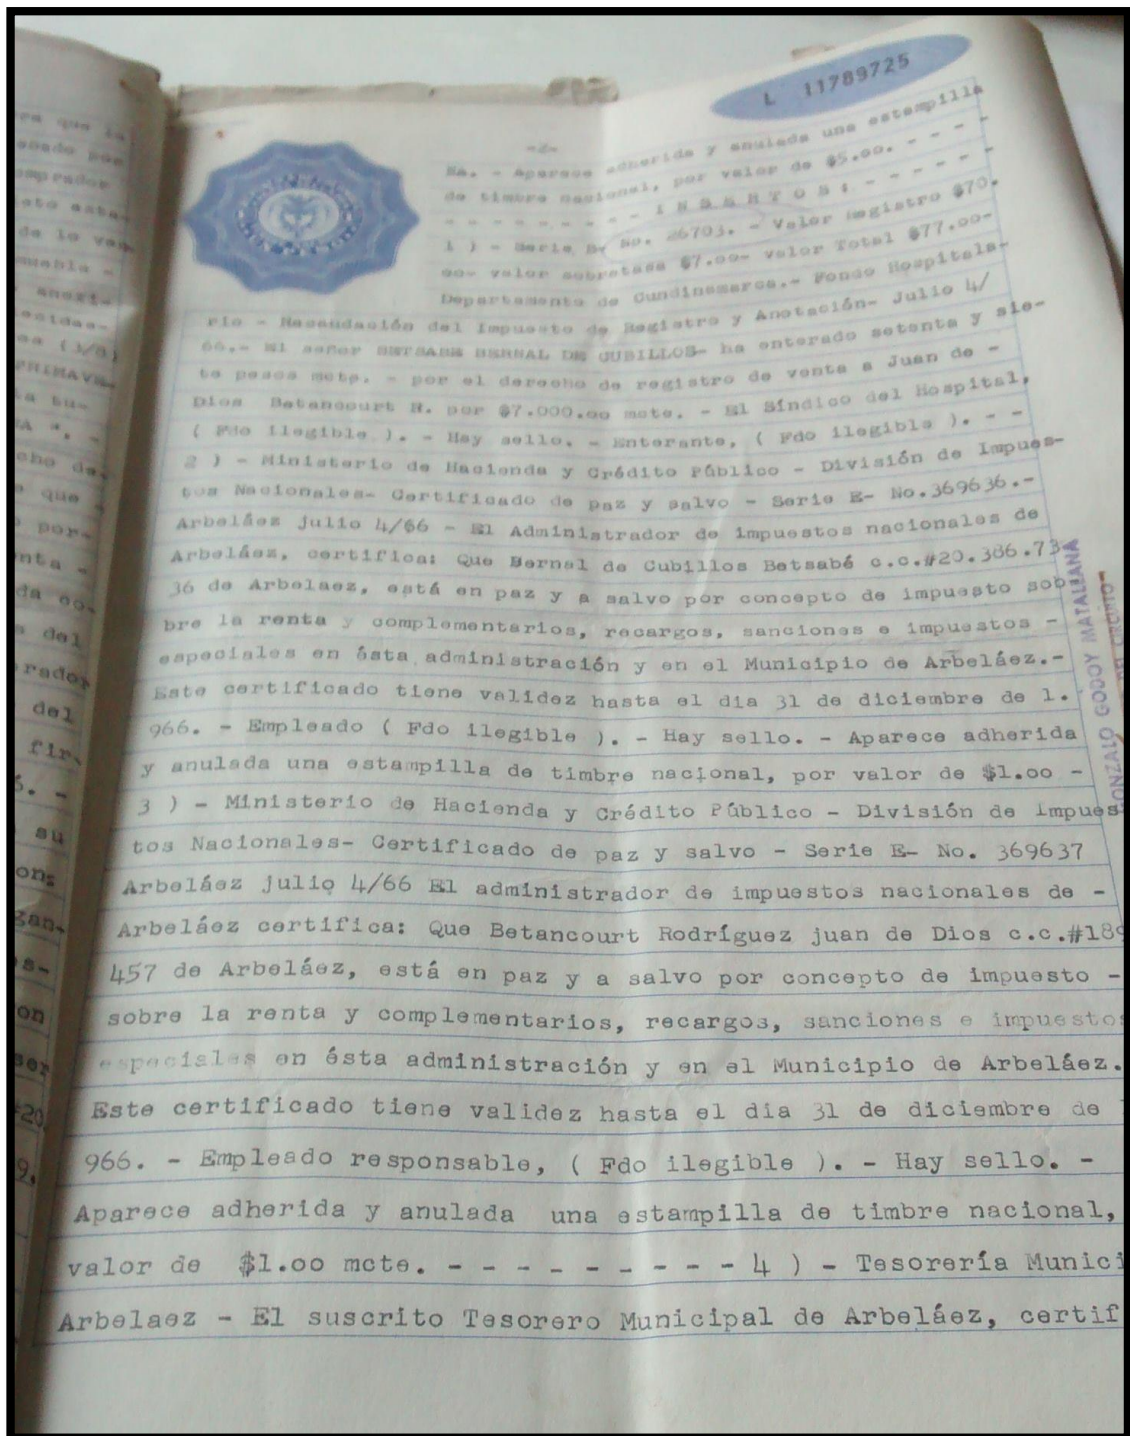 L 11789725
-2-
EA. - Aparece adherida y anulada una estampilla
de timbre nacional, por valor de $5.00. - - - -
- - - - - - - - - I N S E R T O S : - - - - - -
1 ) - Serie B- No. 26703. - Valor Registro $70.
oo- valor sobretasa $7.oo- valor Total $77.oo-
Departamento de Cundinamarca.- Fondo Hospitala-
rio - Recaudación del Impuesto de Registro y Anotación- Julio 4/
66.- El señor BETSABE BERNAL DE CUBILLOS- ha enterado setenta y sie-
te pesos mcte. - por el derecho de registro de venta a Juan de -
Dios Betancourt R. por $7.000.oo mcte. - El Síndico del Hospital,
( Fdo ilegible ). - Hay sello. - Enterante, ( Fdo ilegible ). - -
2 ) - Ministerio de Hacienda y Crédito Público - División de Impues-
tos Nacionales- Certificado de paz y salvo - Serie E- No.369636.-
Arbeláez julio 4/66 - El Administrador de impuestos nacionales de
Arbeláez, certifica: Que Bernal de Cubillos Betsabé c.c.#20.386.73
36 de Arbelaez, está en paz y a salvo por concepto de impuesto sob
bre la renta y complementarios, recargos, sanciones e impuestos -
especiales en ésta administración y en el Municipio de Arbeláez.-
Este certificado tiene validez hasta el dia 31 de diciembre de 1.
966. - Empleado ( Fdo ilegible ). - Hay sello. - Aparece adherida
y anulada una estampilla de timbre nacional, por valor de $1.oo -
3 ) - Ministerio de Hacienda y Crédito Público - División de Impues
tos Nacionales- Certificado de paz y salvo - Serie E- No. 369637
Arbeláez julio 4/66 El administrador de impuestos nacionales de -
Arbeláez certifica: Que Betancourt Rodríguez juan de Dios c.c.#189
457 de Arbeláez, está en paz y a salvo por concepto de impuesto -
sobre la renta y complementarios, recargos, sanciones e impuestos
especiales en ésta administración y en el Municipio de Arbeláez.
Este certificado tiene validez hasta el dia 31 de diciembre de
966. - Empleado responsable, ( Fdo ilegible ). - Hay sello. -
Aparece adherida y anulada una estampilla de timbre nacional,
valor de $1.oo mcte. - - - - - - - - - - 4 ) - Tesorería Munici
Arbelaez - El suscrito Tesorero Municipal de Arbeláez, certif
GONZALO GODOY MATALLANA